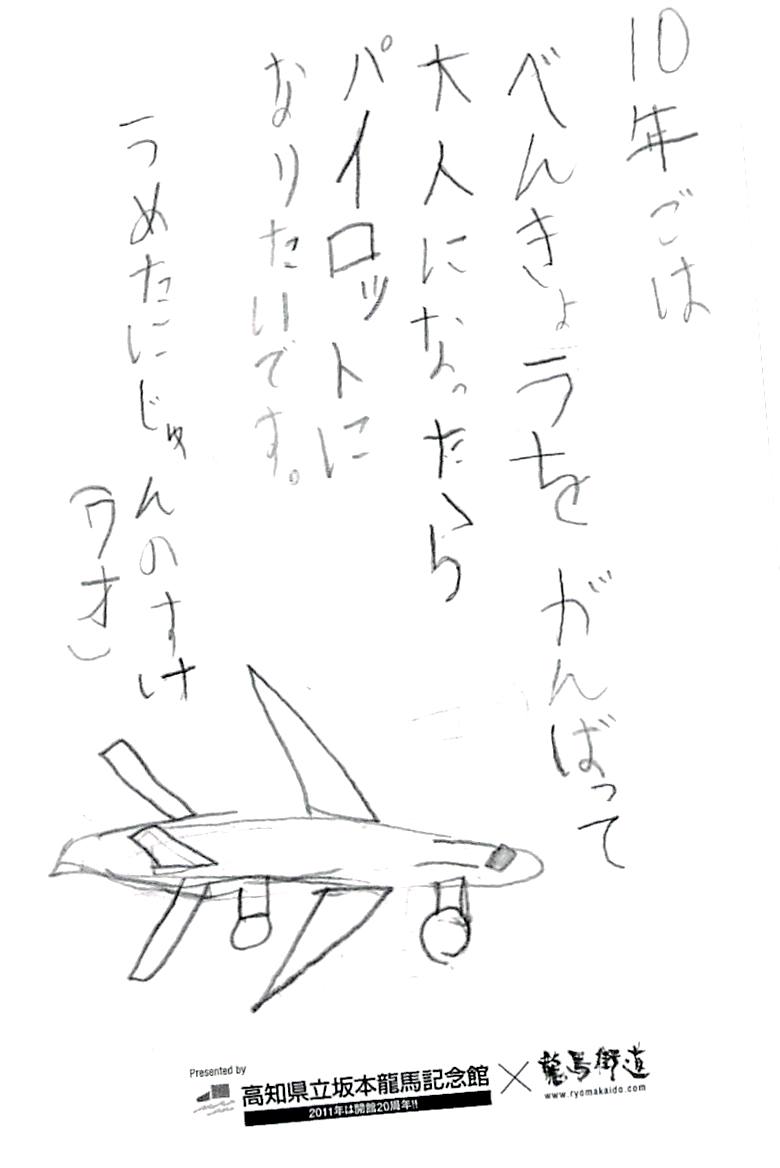 10年ごは
べんきょうを がんばって
大人になったら
パイロットに
なりたいです。
うめたにじゅんのすけ
(ワオ)
Presented by
高知県立坂本龍馬記念館
2011年は開館20周年!!
×
龍馬街道
www.ryomakaido.com